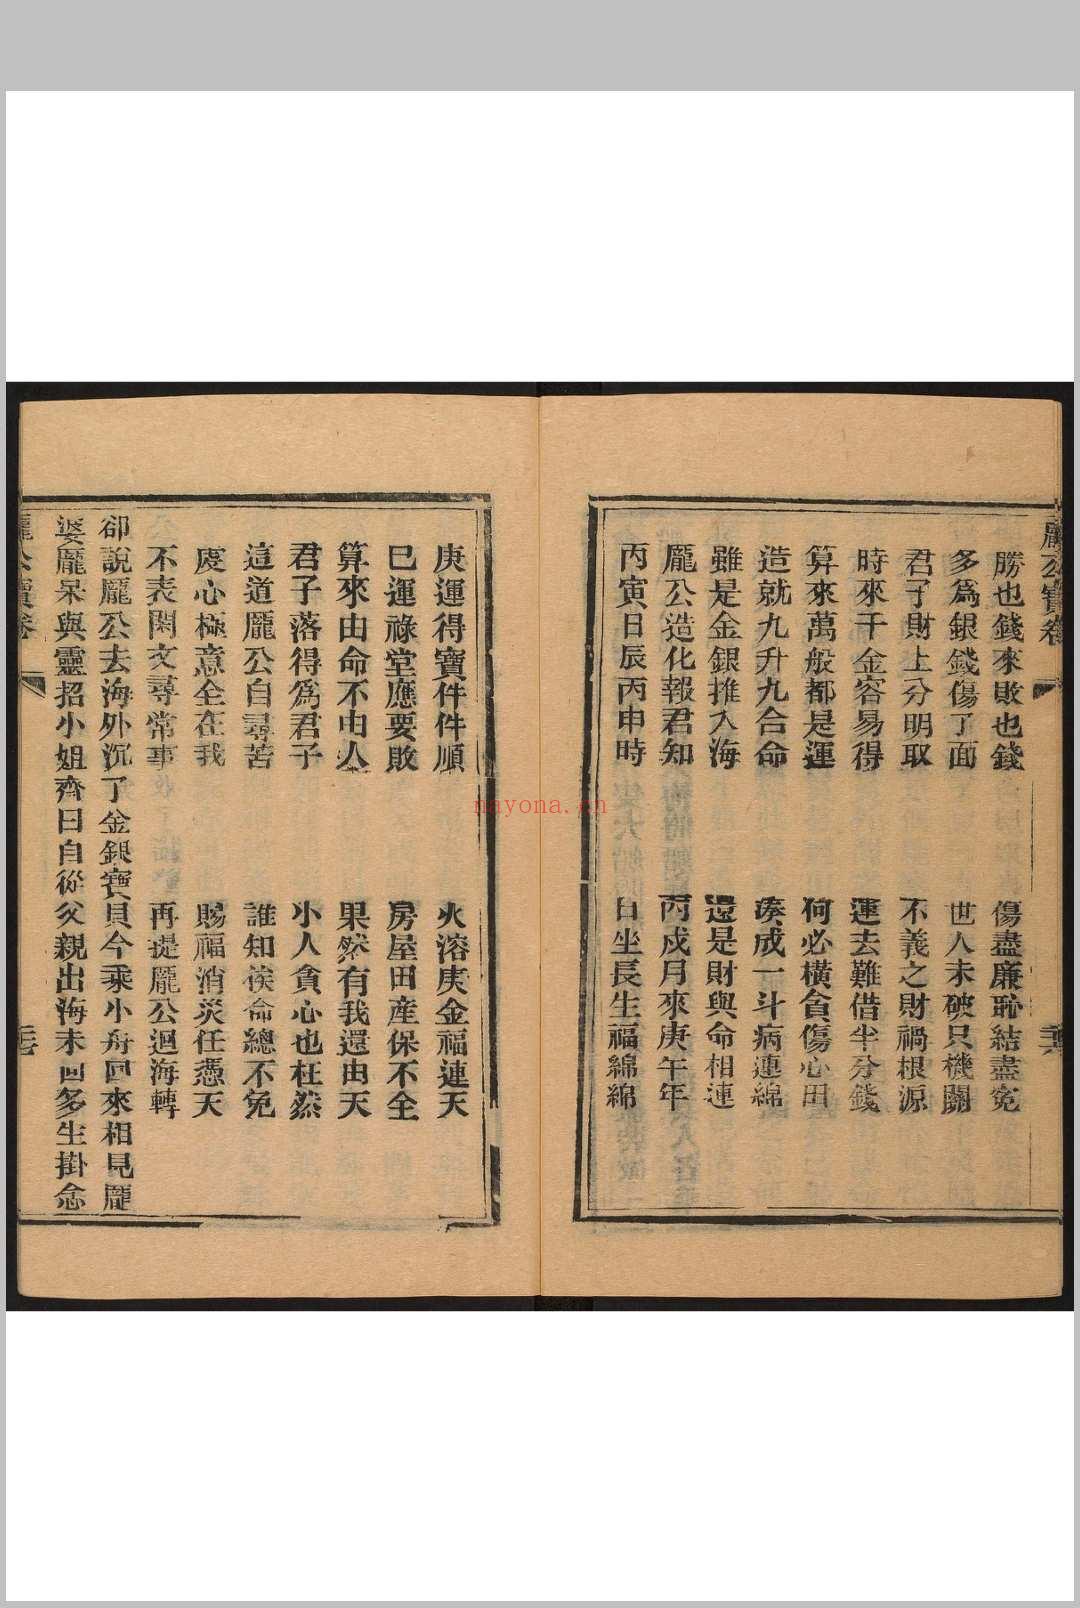 龐公寶卷
二十六
勝也錢來敗也錢　傷盡廉恥結盡寃
多爲銀錢傷了面　世人未破只機關
君子財上分明取　不義之財禍根源
時來千金容易得　運去難借半分錢
算來萬般都是運　何必橫貪傷心田
造就九升九合命　湊成一斗病連綿
雖是金銀推入海　還是財與命相連
龐公造化報君知　丙戍月來庚午年
丙寅日辰丙申時　日坐長生福綿綿
庚運得寶件件順　火溶庚金福連天
巳運祿堂應要敗　房屋田産保不全
算來由命不由人　果然有我還由天
君子落得爲君子　小人貪心也枉然
這道龐公自尋苦　誰知俟命總不免
虔心極意全在我　賜福消災任憑天
不表閑文尋常事　再提龐公迴海轉
卻說龐公去海外沉了金銀寶貝今乘小舟回來相見龐
婆龐呆與靈招小姐齊曰自從父親出海未回多生掛念
龐公寶卷
nayona.cn